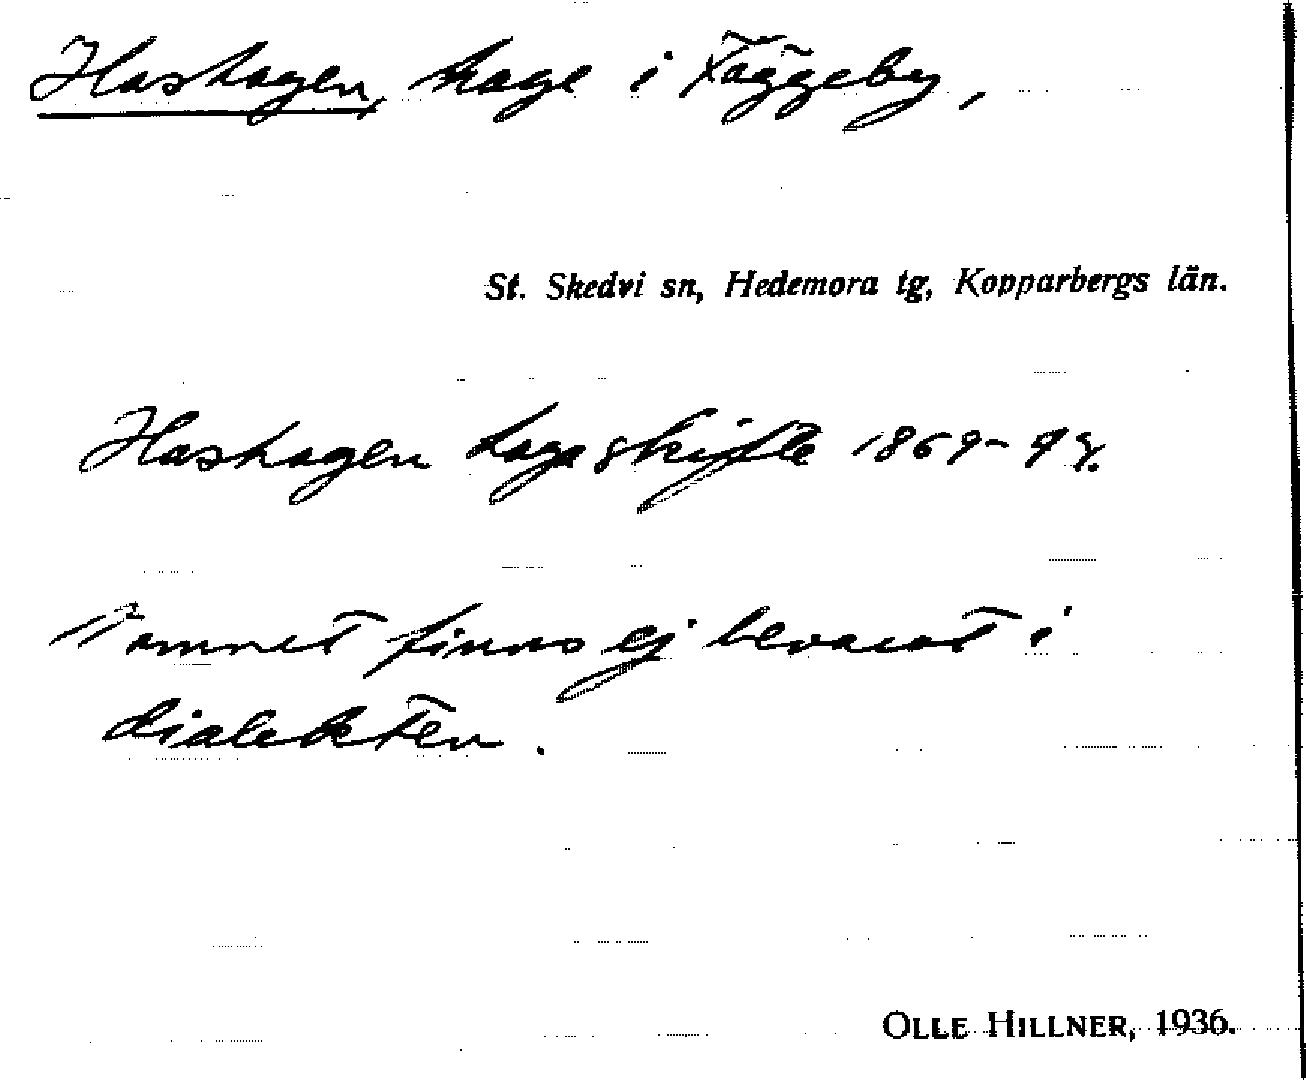 Hashagen, hage i Fäggeby,
St. Skedvi sn, Hedemora tg, Kopparbergs län.
Hashagen laga skifte 1869-
Namnet finns ej bevarat i
dialekten.
OLLE HILLNER, 1936.